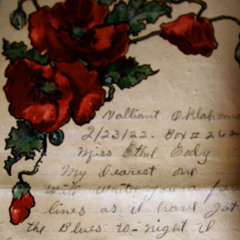 Valliant Oklahoma
2/23/22. Box # 262
Miss Ethel Eody
My Dearest one
will write you a few
lines as i have got
the Blues to-night il